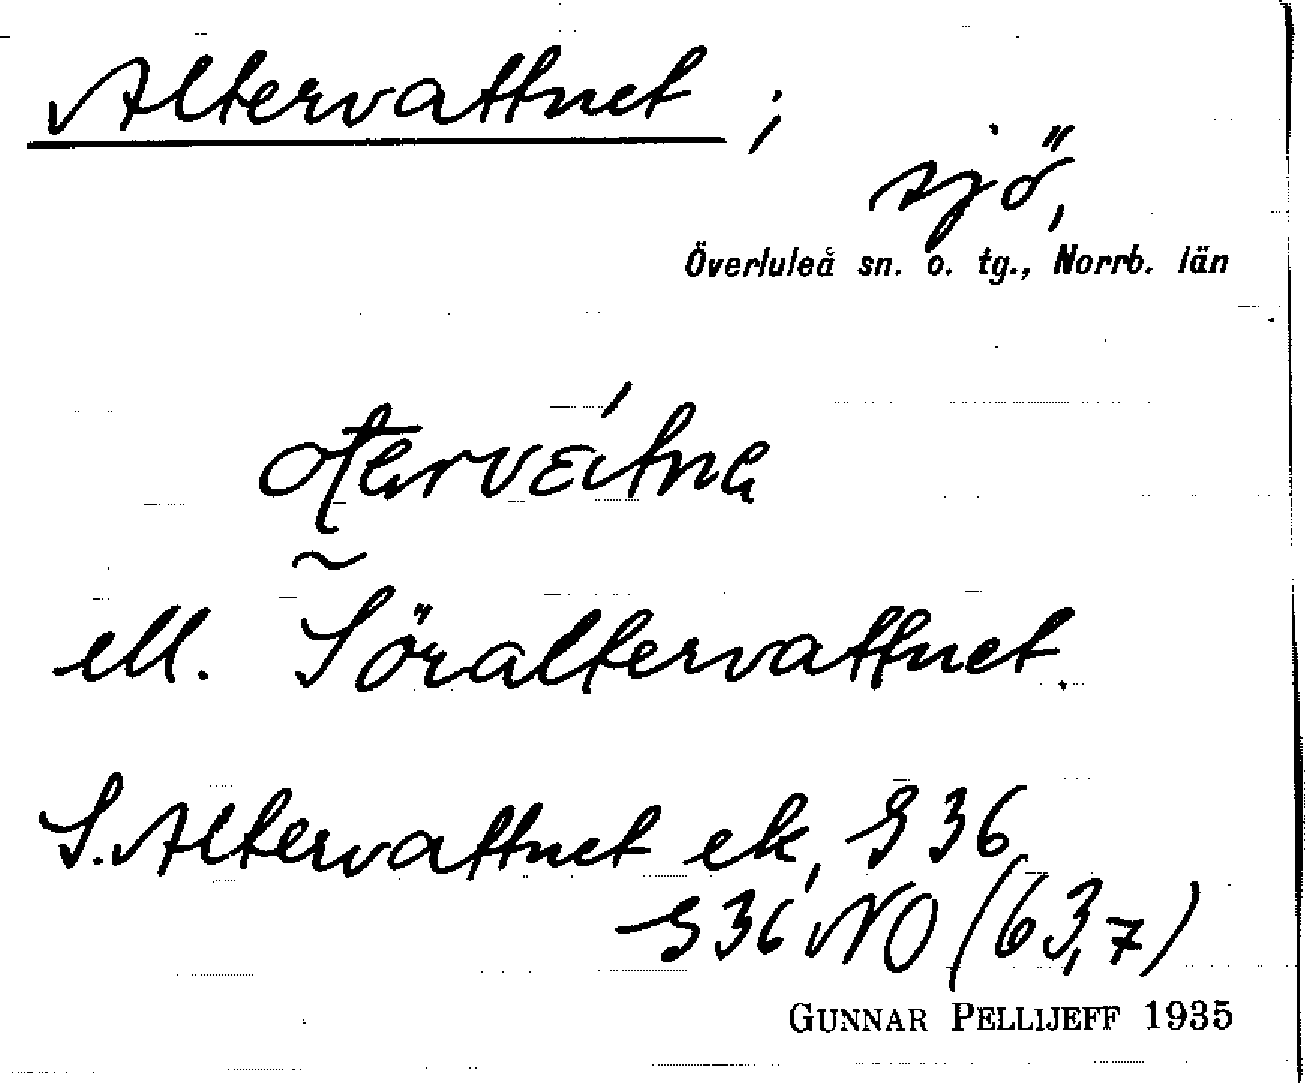 Altervattnet ;
sjö,
Överluleå sn. o. tg., Norrb. län
ell. Söraltervattnet.
S. Altervattnet ek, S 36
S 36 NO (63,7)
GUNNAR PELLIJEFF 1935